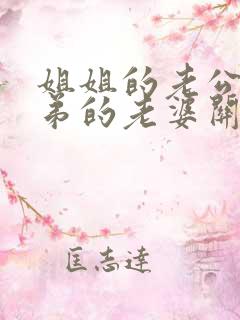 姐姐的老公
弟的老婆関
匡志達